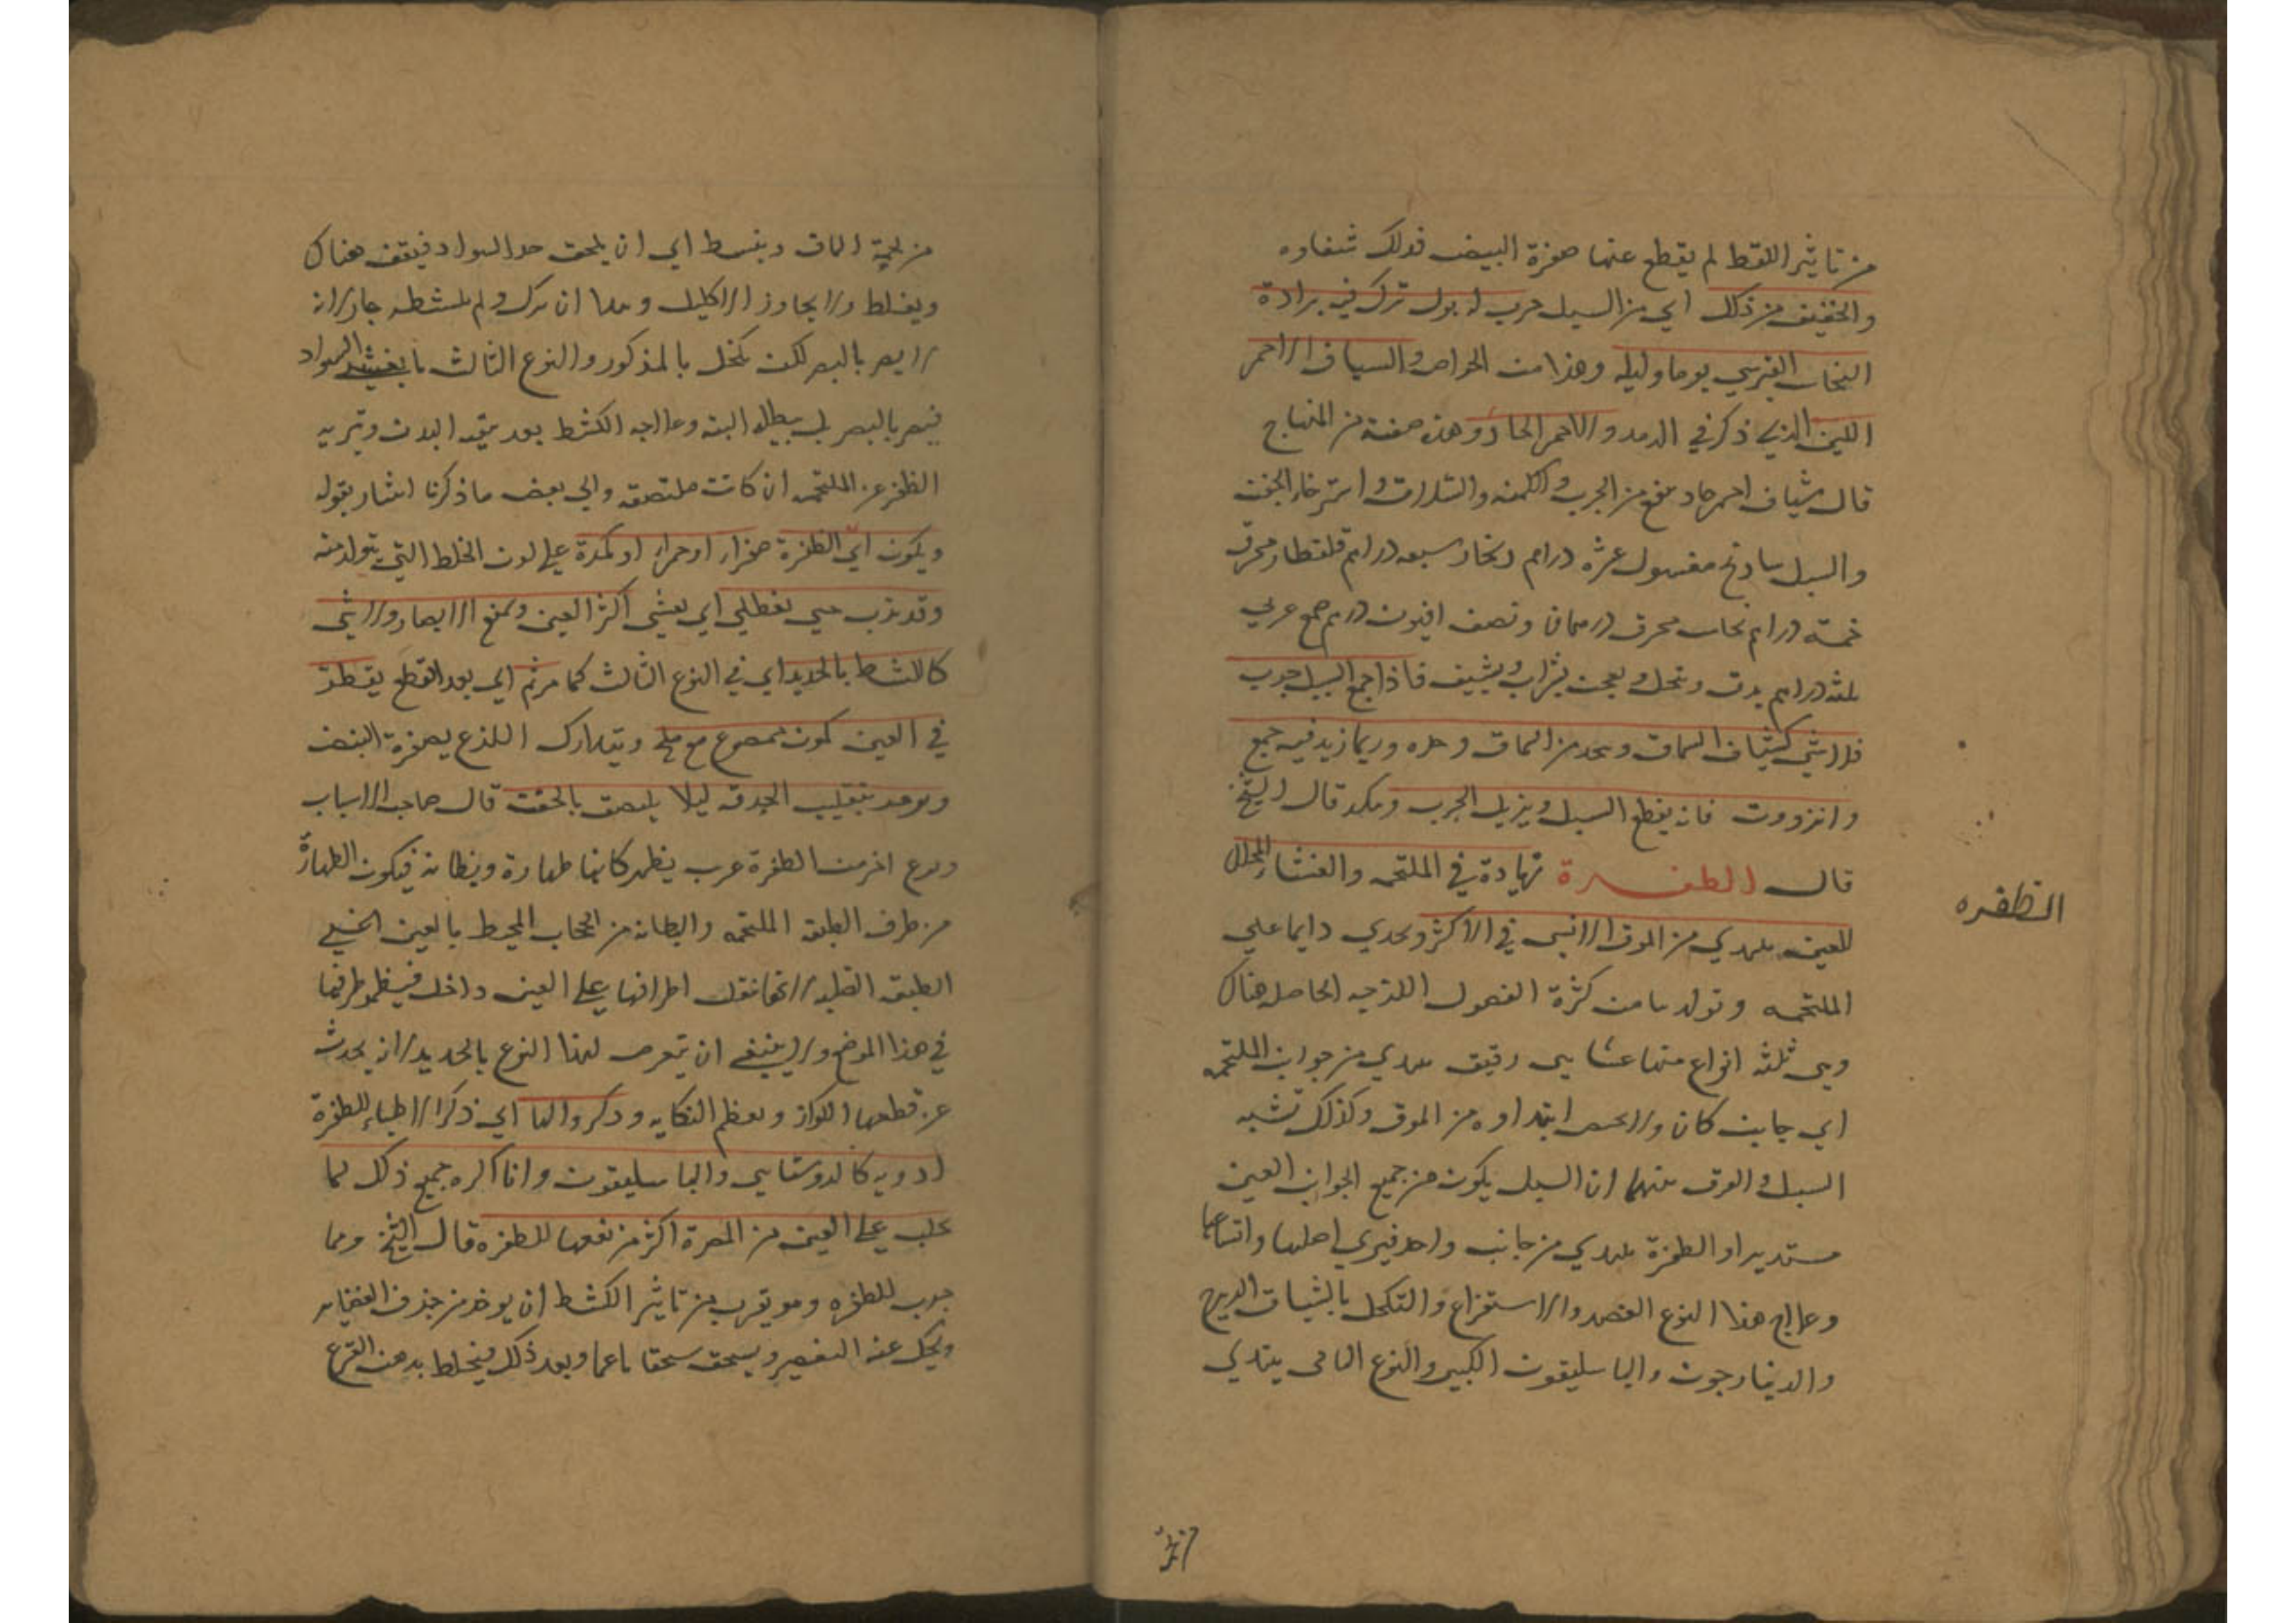 من تاثير اللقط لم يقطع عنها صفرة البيض فذلك شفاوه
والخفيف من ذلك اي من السبل جرب له بول ترك فيه برادة
النحاس القبرسي يوما وليله وهذا من الخواص والشياف الاحمر
اللين الذي ذكر في الرمد والاحمر الحاد وهذه صفته من المنهاج
قال شياف احمر حاد ينفع من الجرب والكمنه واسترخاء الجفن
والسبل سادنج مغسول عشرة دراهم زنجار سبعه دراهم قلقطار محرق
خمسة دراهم نحاس محرق درهمان ونصف افيون درهم صمغ عربي
ثلثه دراهم يدق وينخل ويعجن بشراب ويشيف فاذا اجتمع السبل جرب
فلا شي كشياف السماق ويتخذ من السماق وحده وربما زيد فيه صمغ
وانزروت فانه يقطع السبل ويزيل الجرب قال الشيخ
قال الظفرة زيادة في الملتحمه والغشاء المجلل
الظفره
للعين يبتدي من الموق الانسي في الاكثر ويجري دايما علي
الملتحمه وتولدها من كثرة الفضول اللزجه الحاصله هناك
وهي ثلثه انواع منها غشايي رقيق يبتدي من جوانب الملتحمه
اي جانب كان ولا يختص ابتداوه من الموق وكذلك تشبه
السبل والفرق بينهما ان السبل يكون من جميع الجوانب العين
مستديرا والظفرة يبتدي من جانب واحد فيري اصلها واتساعها
وعلاج هذا النوع الفصد والاستفراغ والتكحل بالشياف
والدينارجون والباسليقون الكبير والنوع الثاني يبتدي
من لحمية الماق وينبسط الي ان يلحق حد السواد فيقف هناك
ويغلظ ولا يجاوز الاكليل وهذا ان ترك ولم يكشط جاز لانه
لا يضر بالبصر لكن يكحل بالمذكور والنوع الثالث ما يغشي السواد
فيضر بالبصر بل يبطله البته وعلاجه الكشط بعد تنقيه البدن وتبريه
الظفر عن الملتحمه ان كانت ملتصقه والي بعض ما ذكرنا اشار بقوله
ويكون اي الظفرة صفراء او حمراء او كمدة علي لون الخلط التي يتولد منه
وقد يذب حتي يغطي اي يغشي اكثر العين ويمنع الابصار ولا شي
كالكشط بالحديد اي في النوع الثالث كما مر ثم اي بعد القطع يقطر
في العين كمون ممضوع مع ملح ويتدارك اللذع بصفرة البيض
ويومر بتقليب الحدقه ليلا يلتصق بالجفن قال صاحب الاسباب
ونوع اخر من الظفرة غريب يظهر كانها طهارة وبطانه فيكون الطهارة
من طرف الطبقه الملتحمه والبطانه من الحجاب المحيط بالعين
اطرافها علي العين داخل فيظهر طرفها
في هذا الموضع ولا ينبغي ان يتعرض لهذا النوع بالحديد لانه يحدث
عن قطعها الكزاز ويعظم النكايه وذكروا لها اي ذكر الاطباء للظفرة
ادويه كالروشنايي والباسليقون وانا اكره جميع ذلك لما
يجلب علي العين من المضرة اكثر من نفعها للظفره قال الشيخ ومما
جرب للظفره وهو يقرب من تاثير الكشط ان يوخذ من خزف الغضاير
ويحك عنه التغضير ويسحق سحقا ناعما وبعد ذلك فيخلط بدهن القرع